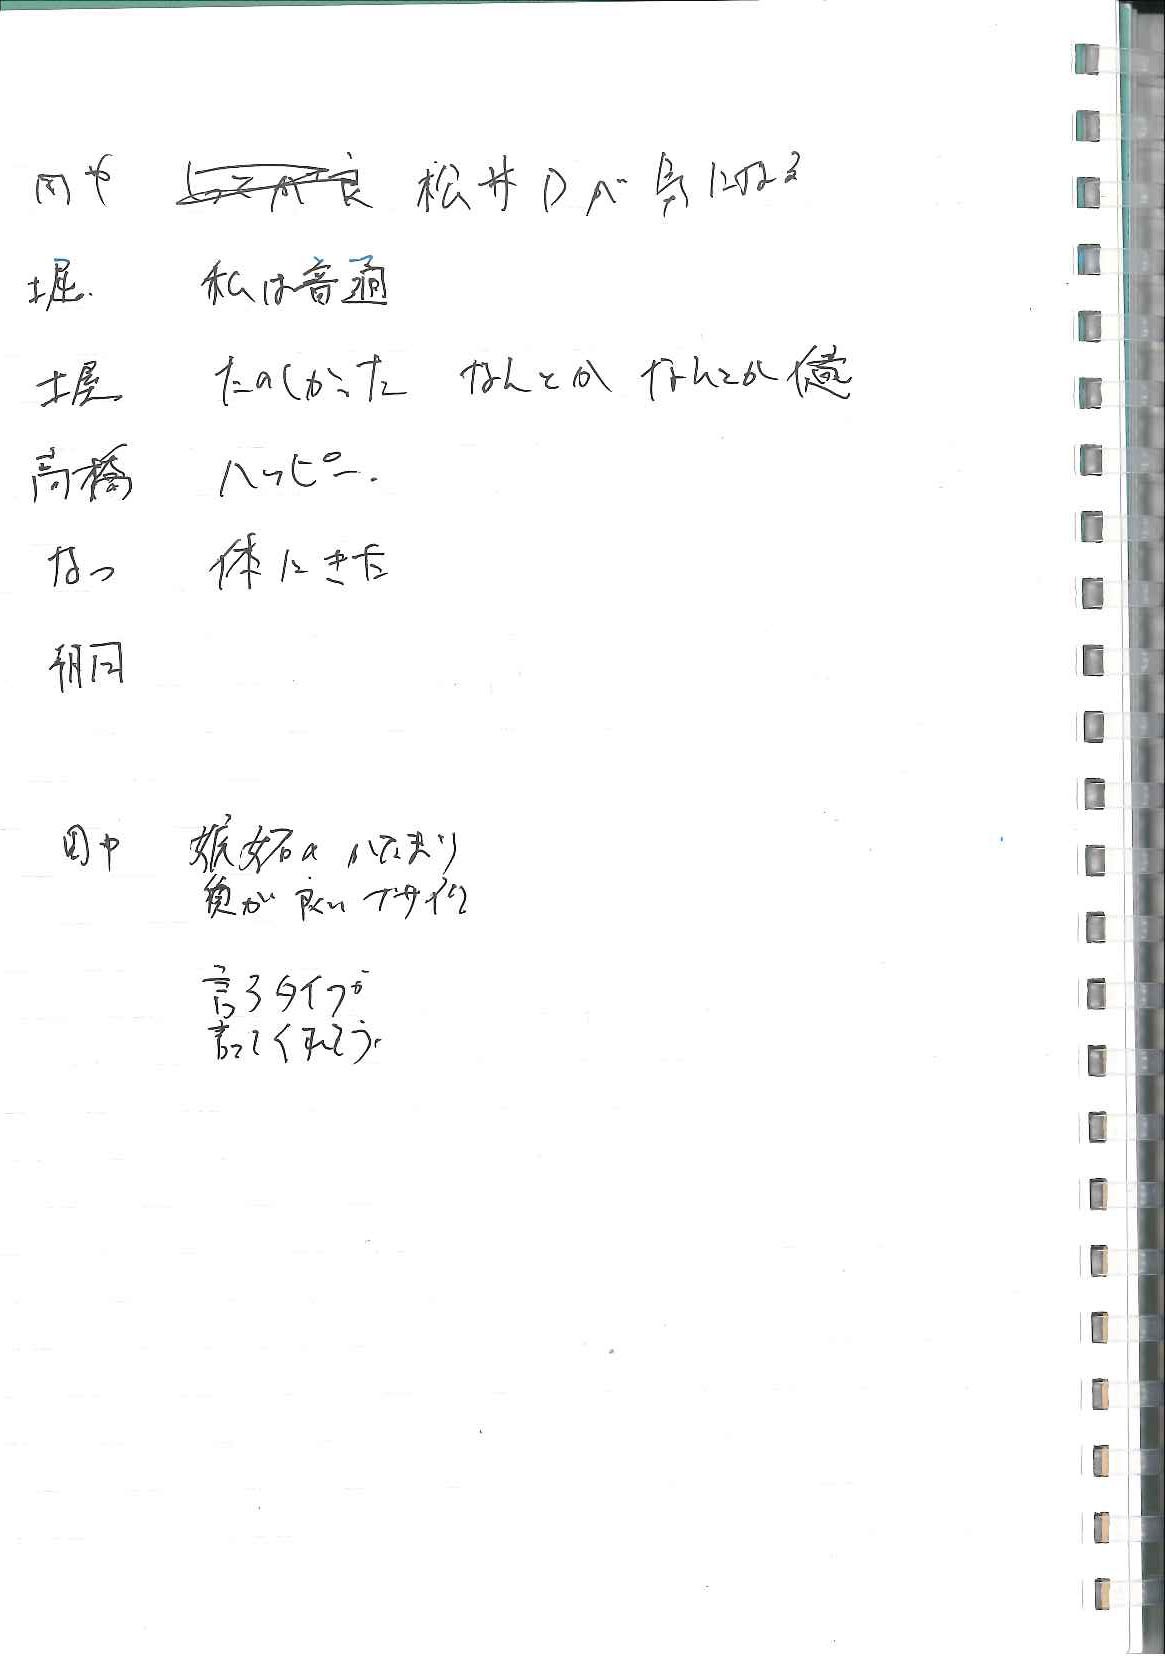 田中 松井Dが気になる
堀 私は普通
土屋 たのしかった なんとか なんとか 億
高橋 ハッピー.
なつ 体にきた
朝日
田中 嫉妬のかたまり
が良い
言うタイプが
言ってくれそう.